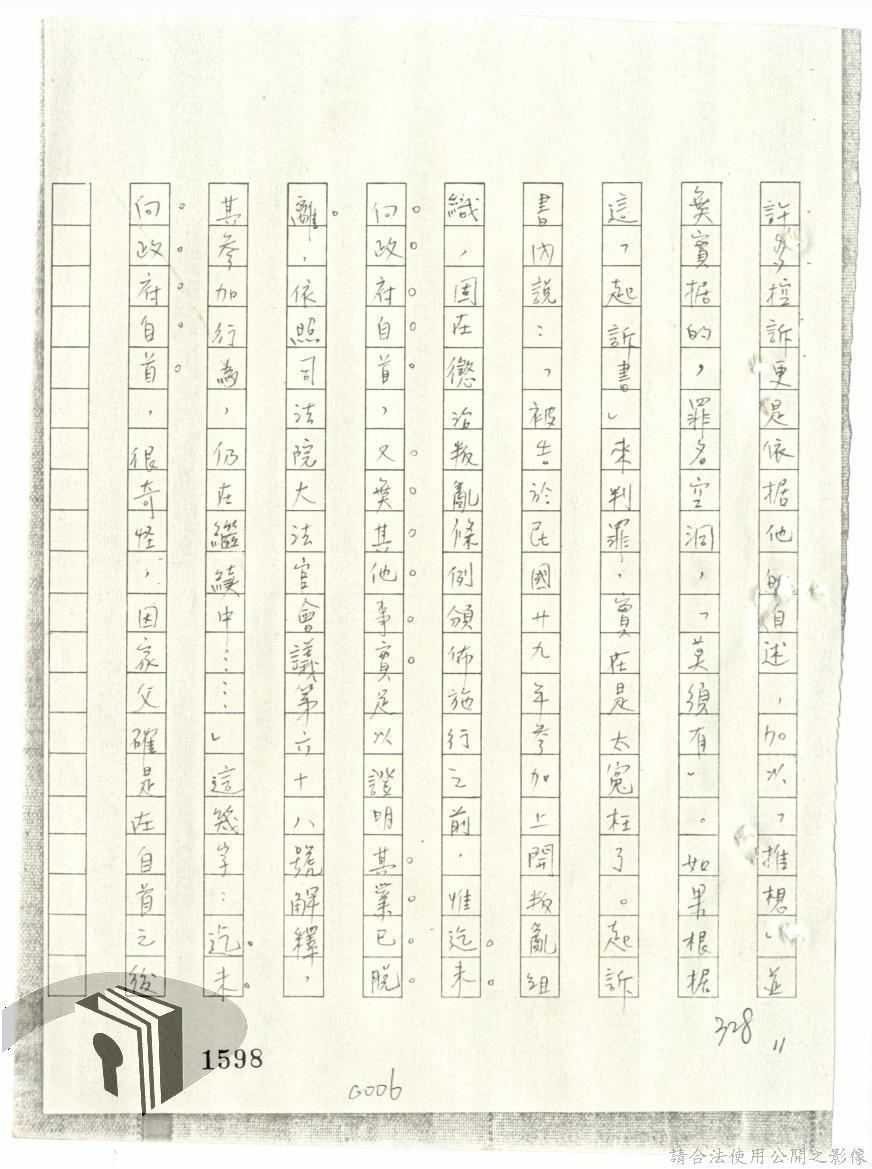 許多控訴更是依据他的自述，加以「推想」並
無實据的，罪名空洞，「莫須有」。如果根据
這「起訴書」來判罪，實在是太冤枉了。起訴
書內說：「被告於民國廿九年參加上開叛亂組
織，固在懲治叛亂條例頒佈施行之前，惟迄未
向政府自首，又無其他事實足以證明其業已脫
離，依照司法院大法官會議第六十八號解釋，
其參加行為，仍在繼續中……」這幾字：迄未
向政府自首，很奇怪，因家父確是在自首之後
328
11
1598
0006
請合法使用公開之影像